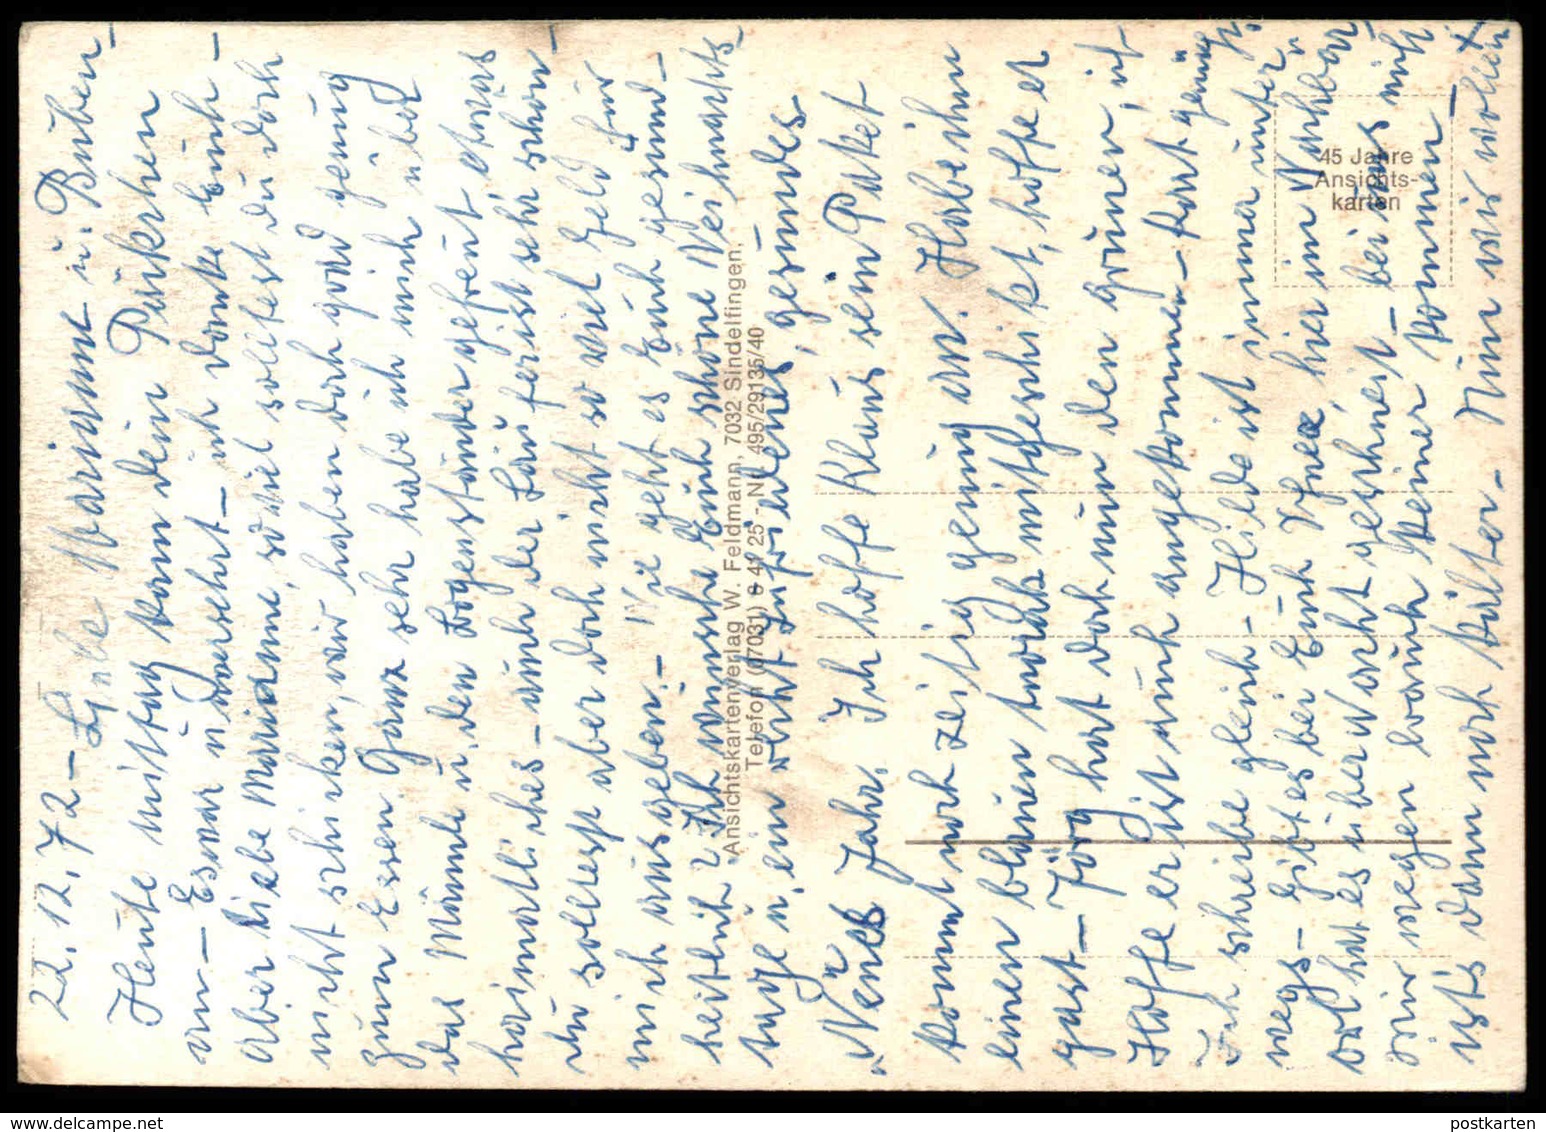 22.12.72 – Liebe Marianne u. Buben –
Heute mittag kam dein Päckchen
an – Es war unversehrt – ich danke Euch –
Aber liebe Marianne, so viel solltest du doch
nicht schicken, wir haben doch grad genug
zum Essen. Ganz sehr habe ich mich über
das Männle u. den Logenständer gefreut etwas
heimatliches – auch der Läufer ist sehr schön –
du solltest aber doch nicht so viel Geld für
mich ausgeben. – Wie geht es Euch gesund –
heitlich? Ich wünsche Euch schöne Weihnachts –
tage u. ein recht zufriedenes, gesundes
"Neues Jahr." Ich hoffe Klaus sein Paket
kommt noch zeitig genug an. Habe ihm
einen blauen mitgeschickt, hoffe er
past – Jörg hat doch nur den grünen, ich
Hoffe er ist auch angekommen –
Ich schreibe gleich – Hilde ist immer unter –
wegs – Gibt es bei Euch hier im
hat es über Nacht geschneit – bei uns nich
wegen brauch keiner kommen –
ists dann noch kälter – Nun wir wollen
Ansichtskartenverlag W. Feldmann, 7032 Sindelfingen,
Telefon (07031) 8 41 25 - Nr. 495/29135/40
45 Jahre
Ansichts-
karten
postkarten